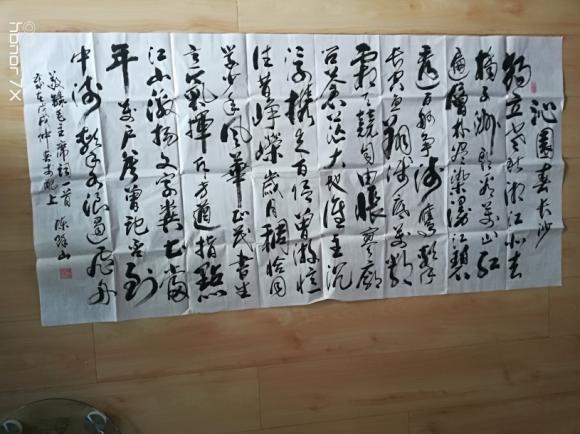 沁园春长沙
独立寒秋湘江北去
橘子洲头看万山红
遍层林尽染漫江碧
透百舸争流鹰击
长空鱼翔浅底万类
霜天竞自由怅寥廓
问苍茫大地谁主沉
浮携来百侣曾游忆
往昔峥嵘岁月稠恰同
学少年风华正茂书生
意气挥斥方遒指点
江山激扬文字粪土当
年万户侯曾记否到
中流击水浪遏飞舟
毛主席词一首
岁在戊戌仲
上
honor X